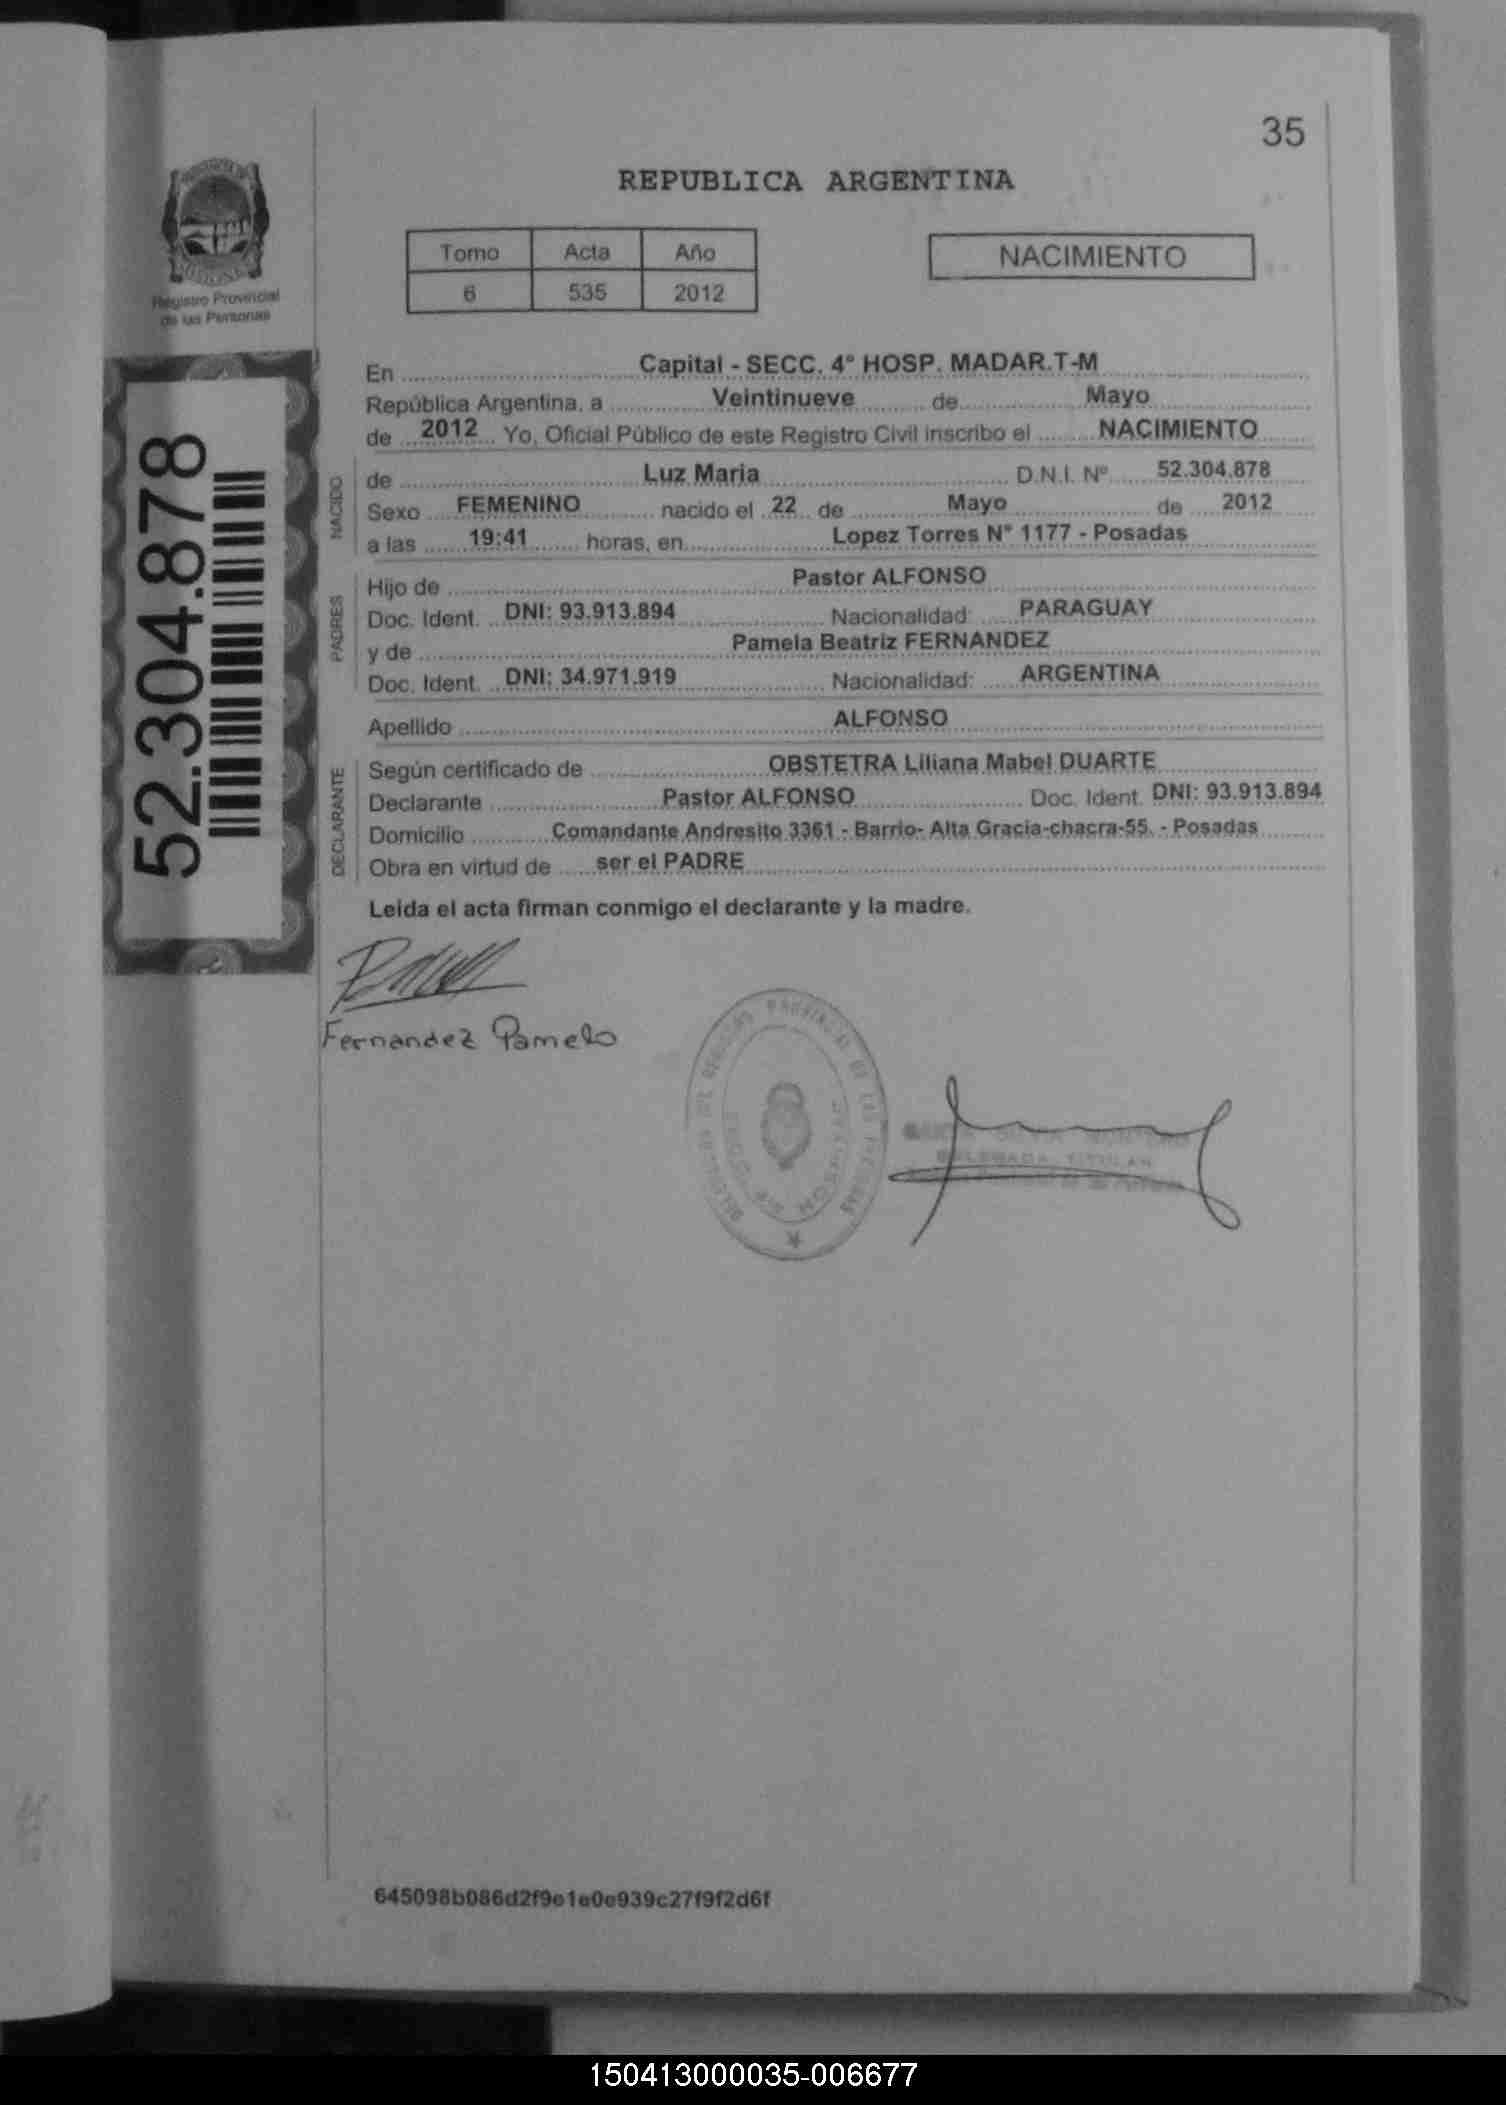 35
REPUBLICA ARGENTINA
Registro Provincial
de las Personas
Tomo Acta Año
6 535 2012
NACIMIENTO
52.304.878
En Capital - SECC. 4° HOSP. MADAR.T-M
República Argentina, a Veintinueve de Mayo
de 2012 Yo, Oficial Público de este Registro Civil inscribo el NACIMIENTO
NACIDO
de Luz Maria D.N.I. Nº 52.304.878
Sexo FEMENINO nacido el 22 de Mayo de 2012
a las 19:41 horas, en Lopez Torres N° 1177 - Posadas
PADRES
Hijo de Pastor ALFONSO
Doc. Ident. DNI: 93.913.894 Nacionalidad: PARAGUAY
y de Pamela Beatriz FERNANDEZ
Doc. Ident. DNI: 34.971.919 Nacionalidad: ARGENTINA
Apellido ALFONSO
DECLARANTE
Según certificado de OBSTETRA Liliana Mabel DUARTE
Declarante Pastor ALFONSO Doc. Ident. DNI: 93.913.894
Domicilio Comandante Andresito 3361 - Barrio- Alta Gracia-chacra-55. - Posadas
Obra en virtud de ser el PADRE
Leida el acta firman conmigo el declarante y la madre.
Fernandez Pamela
PROVINCIAL DE LAS
DELEGADA TITULAR
645098b086d2f9e1e0e939c27f9f2d6f
150413000035-006677